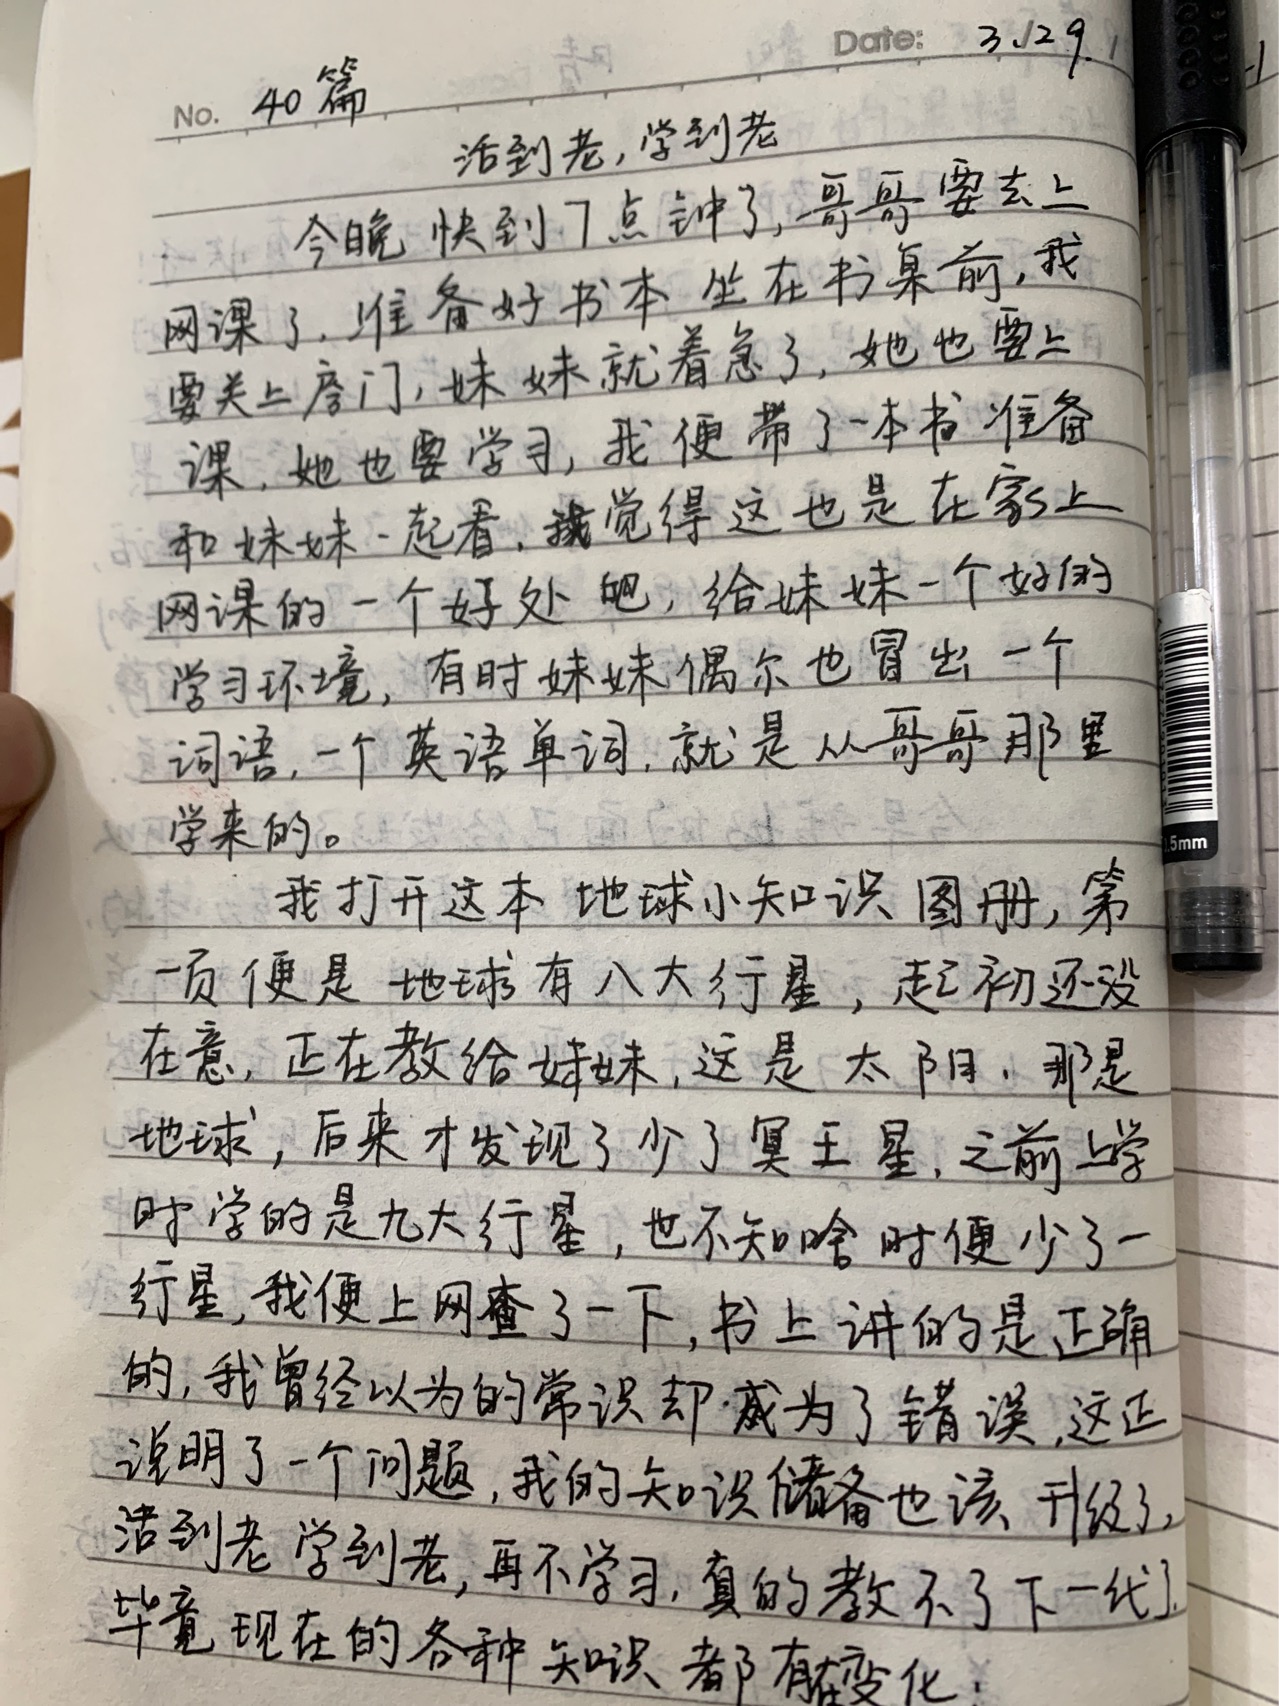 Date: 3.29.
No. 40篇
活到老，学到老
今晚快到7点钟了，哥哥要去上
网课了，准备好书本坐在书桌前，我
要关上房门，妹妹就着急了，她也要上
课，她也要学习，我便带了一本书准备
和妹妹一起看，我觉得这也是在家上
网课的一个好处吧，给妹妹一个好的
学习环境，有时妹妹偶尔也冒出一个
词语，一个英语单词，就是从哥哥那里
学来的。
我打开这本地球小知识图册，第
一页便是地球有八大行星，起初还没
在意，正在教给妹妹，这是太阳，那是
地球，后来才发现了少了冥王星，之前上学
时学的是九大行星，也不知啥时便少了一
行星，我便上网查了一下，书上讲的是正确
的，我曾经以为的常识却成为了错误，这正
说明了一个问题，我的知识储备也该升级了，
活到老学到老，再不学习，真的教不了下一代了，
毕竟现在的各种知识都有在变化，
0.5mm